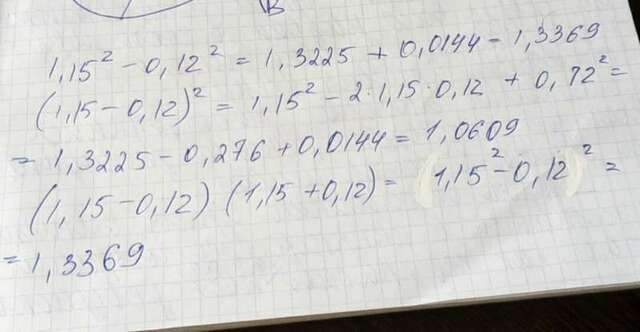 B
1,15² - 0,12² = 1,3225 + 0,0144 - 1,3369
(1,15 - 0,12)² = 1,15² - 2·1,15·0,12 + 0,12² =
= 1,3225 - 0,276 + 0,0144 = 1,0609
(1,15 - 0,12) (1,15 + 0,12) = (1,15² - 0,12)² =
= 1,3369